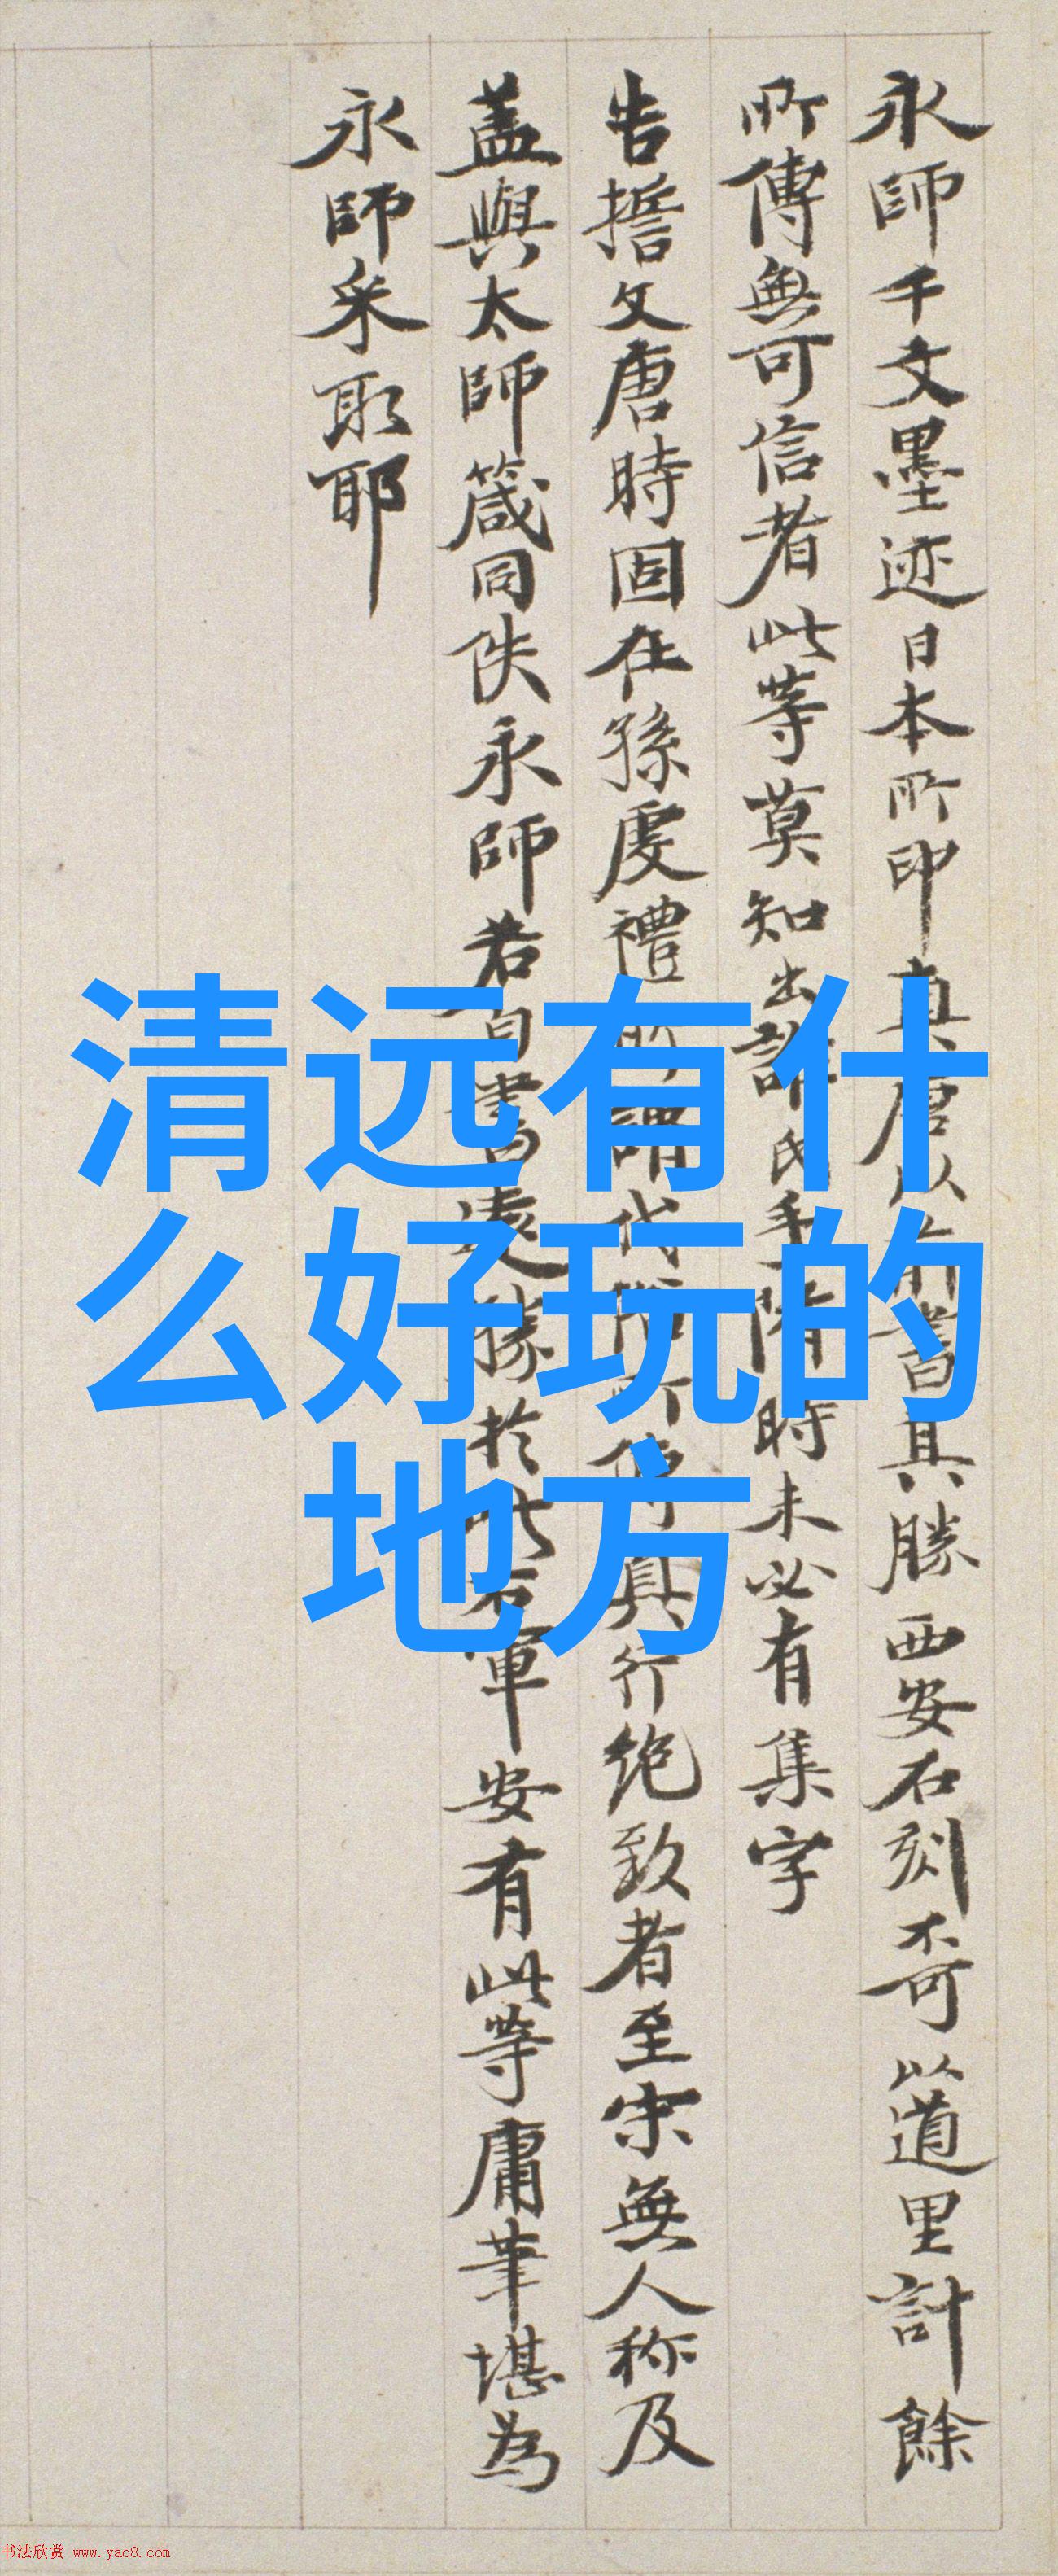 永師千文墨迹日本所印真唐以前書其勝西安石刻不可以道里計餘
所傳無可信者此等莫知出誰氏手隋時未必有集字
告搢文唐時固在孫虔禮
代
真行絶致者至宋無人称及
蓋與太師箴同佚永師若自書
勝於此右軍安有此等庸筆堪為
永師采取耶
清远有什
么好玩的
地方
书法欣赏 www.yac8.com